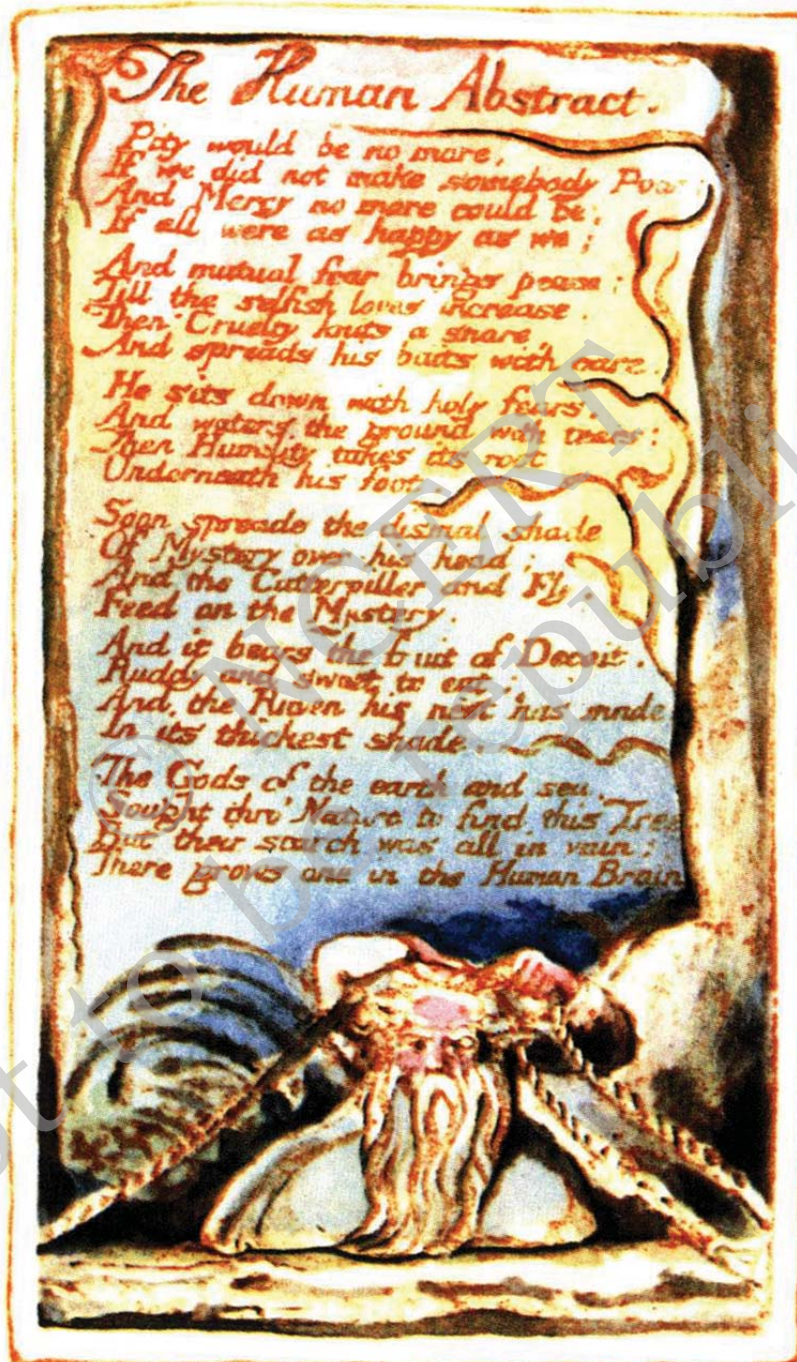 The Human Abstract.
Pity would be no more,
If we did not make somebody Poor:
And Mercy no more could be,
If all were as happy as we;
And mutual fear brings peace:
Till the selfish loves increase.
Then Cruelty knits a snare,
And spreads his baits with care.
He sits down with holy fears.
And waters the ground with tears:
Then Humility takes its root
Underneath his foot.
Soon spreads the dismal shade
Of Mystery over his head;
And the Catterpiller and Fly,
Feed on the Mystery.
And it bears the fruit of Deceit.
Ruddy and sweet to eat;
And the Raven his nest has made
In its thickest shade.
The Gods of the earth and sea,
Sought thro' Nature to find this Tree
But their search was all in vain;
There grows one in the Human Brain
© NCERT
not to be republi